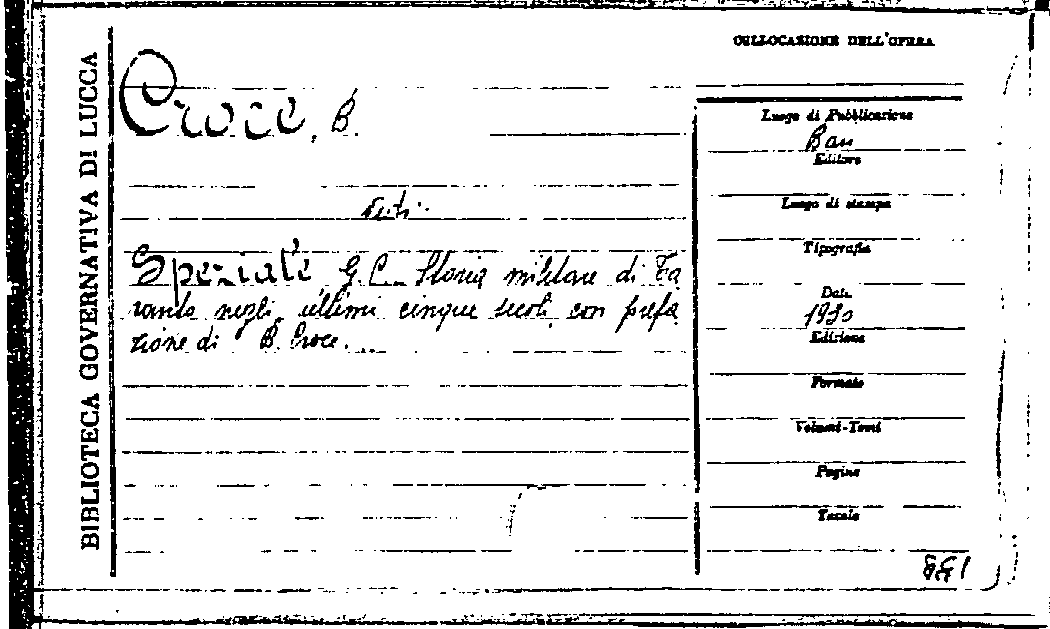 BIBLIOTECA GOVERNATIVA DI LUCCA
COLLOCAZIONE DELL'OPERA
Croce, B.
Vedi:
Speziale G. C. Storia militare di Ta
ranto negli ultimi cinque secoli, con prefa
zione di B. Croce.
Luogo di Pubblicazione
Bari
Editore
Luogo di stampa
Tipografia
Data
1930
Edizione
Formato
Volumi-Tomi
Pagine
Tavole